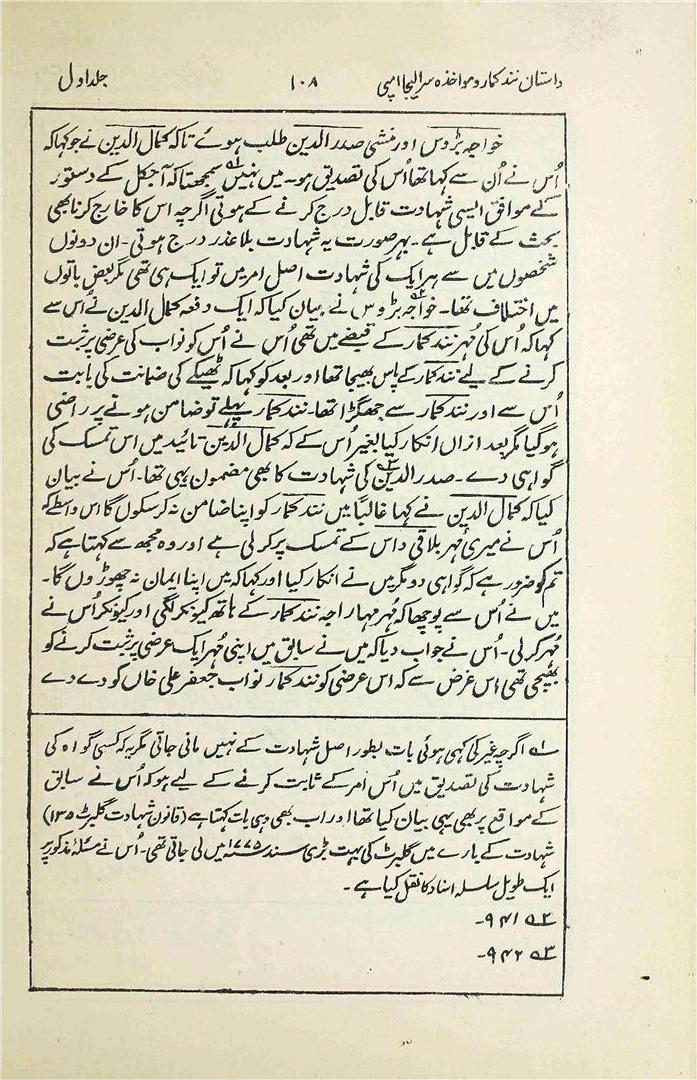 داستان نند کمار و مواخذہ سر الیجا امپی ۱۰۸ جلد اول
خواجہ بڑوس اور منشی صدر الدین طلب ہوئے تاکہ کمال الدین نے جو کہا کہ
اُس نے اُن سے کہا تھا اُس کی تصدیق ہو۔ میں نہیں سمجھتا کہ آجکل کے دستور
کے موافق ایسی شہادت قابل درج کرنے کے ہوتی اگرچہ اس کا خارج کرنا بھی
بحث کے قابل ہے۔ بہر صورت یہ شہادت بلا عذر درج ہوتی۔ ان دونوں
شخصوں میں سے ہر ایک کی شہادت اصل امر میں تو ایک ہی تھی مگر بعض باتوں
میں اختلاف تھا۔ خواجہ بڑوس نے بیان کیا کہ ایک دفعہ کمال الدین نے اُس سے
کہا کہ اُس کی مُہر نند کمار کے قبضے میں تھی اُس نے اُس کو نواب کی عرضی پر ثبت
کرنے کے لیے نند کمار کے پاس بھیجا تھا اور بعد کو کہا کہ ٹھیکے کی ضمانت کی بابت
اُس سے اور نند کمار سے جھگڑا تھا۔ نند کمار پہلے تو ضامن ہونے پر راضی
ہوگیا مگر بعد ازاں انکار کیا بغیر اُس کے کہ کمال الدین تائید میں اس تمسک کی
گواہی دے۔ صدر الدین کی شہادت کا بھی مضمون یہی تھا۔ اُس نے بیان
کیا کہ کمال الدین نے کہا غالباً میں نند کمار کو اپنا ضامن نہ کر سکوں گا اس واسطے کہ
اُس نے میری مُہر بلاقی داس کے تمسک پر کر لی ہے اور وہ مجھ سے کہتا ہے کہ
تم کو ضرور ہے کہ گواہی دو مگر میں نے انکار کیا اور کہا کہ میں اپنا ایمان نہ چھوڑوں گا۔
میں نے اُس سے پوچھا کہ مُہر مہاراجہ نند کمار کے ہاتھ کیونکر لگی اور کیونکر اُس نے
مُہر کر لی۔ اُس نے جواب دیا کہ میں نے سابق میں اپنی مُہر ایک عرضی پر ثبت کرنے کو
بھیجی تھی اِس غرض سے کہ اس عرضی کو نند کمار نواب جعفر علی خاں کو دے دے
۱؎ اگرچہ غیر کی کہی ہوئی بات بطور اصل شہادت کے نہیں مانی جاتی مگر یہ کہ کسی گواہ کی
شہادت کی تصدیق میں اُس امر کے ثابت کرنے کے لیے ہو کہ اُس نے سابق
کے مواقع پر بھی یہی بیان کیا تھا اور اب بھی وہی بات کہتا ہے (قانون شہادت گلبرٹ ۱۳۵)
شہادت کے بارے میں گلبرٹ کی بہت بڑی سند ۱۷۷۵ء میں لی جاتی تھی۔ اُس نے مسئلۂ مذکور پر
ایک طویل سلسلہ اسناد کا نقل کیا ہے۔
۲؎ ۹۴۱۔
۳؎ ۹۴۲۔